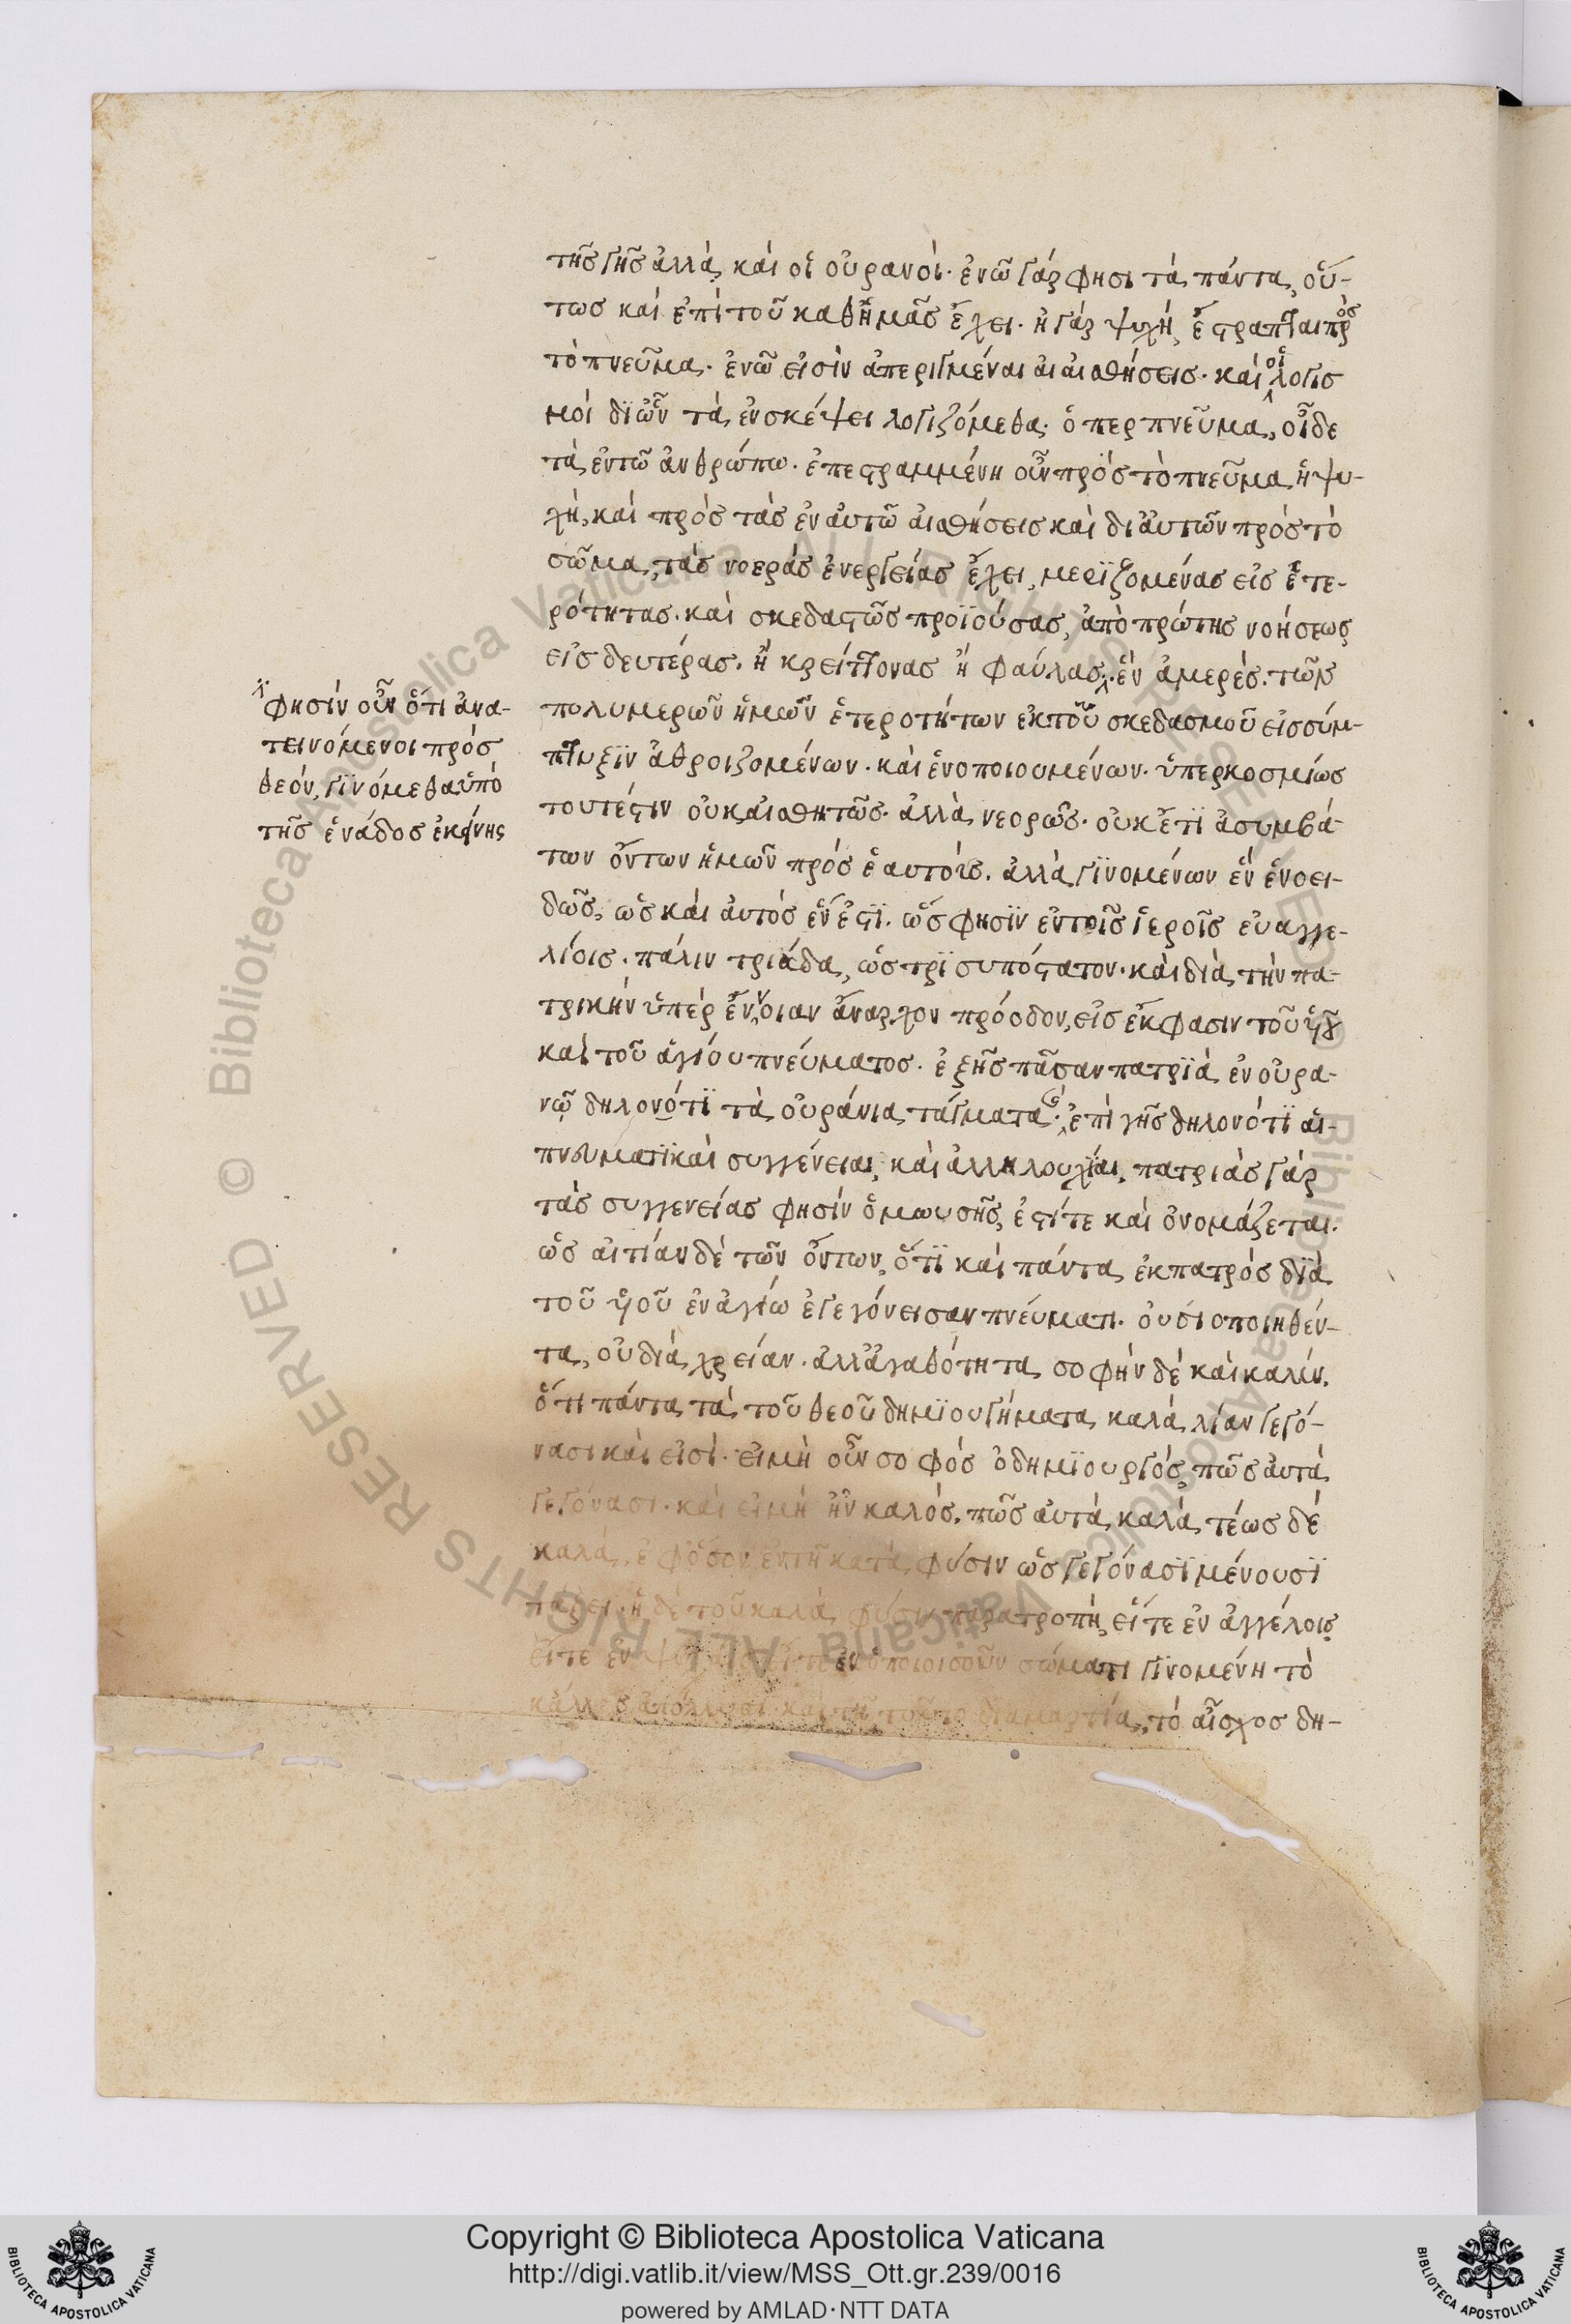 τῆς γῆς ἀλλὰ καὶ οἱ οὐρανοί· ἐν ᾧ γάρ φησι τὰ πάντα, οὕ-
τως καὶ ἐπὶ τοῦ καθ' ἡμᾶς ἔχει· ἡ γὰρ ψυχή, ἔστραπται πρὸς
τὸ πνεῦμα· ἐν ᾧ εἰσὶν ἀπεριγμέναι αἱ αἰσθήσεις· καὶ οἱ λογισ
μοὶ δι' ὧν τὰ ἐν σκέψει λογιζόμεθα· ὅπερ πνεῦμα, οἶδε
τὰ ἐν τῶ ἀνθρώπω· ἐπεστραμμένη οὖν πρὸς τὸ πνεῦμα ἡ ψυ-
χὴ, καὶ πρὸς τὰς ἐν αὐτῶ αἰσθήσεις καὶ δι' αὐτῶν πρὸς τὸ
σῶμα, τὰς νοερὰς ἐνεργείας ἔχει, μεριζομένας εἰς ἑτε-
ρότητας· καὶ σκεδαστῶς προϊούσας, ἀπὸ πρώτης νοήσεως
εἰς δευτέρας· ἢ κρείττονας ἢ φαύλας· ἓν ἀμερές· τῶν
πολυμερῶν ἡμῶν ἑτεροτήτων ἐκ τοῦ σκεδασμοῦ εἰς σύμ-
πτυξϊν ἀθροιζομένων· καὶ ἑνοποιουμένων· ὑπερκοσμίως
τουτέστιν οὐκ αἰσθητῶς· ἀλλὰ νεορῶς· οὐκ ἔτϊ ἀσυμβά-
των ὄντων ἡμῶν πρὸς ἑαυτοὺς· ἀλλὰ γϊνομένων ἓν ἑνοει-
δῶς, ὡς καὶ αὐτὸς ἕν ἐστϊ· ὥς φησϊν ἐν τοῖς ἱεροῖς εὐαγγε-
λίοις· πάλιν τριάδα, ὡς τρϊσυπόστατον· καὶ διὰ τὴν πα-
τρικὴν ὑπὲρ ἔννοιαν ἄναρχον πρόοδον, εἰς ἔκφασιν τοῦ υἱοῦ
καὶ τοῦ ἁγίου πνεύματος· ἐξ ἧς πᾶσαν πατρϊὰ ἐν οὐρα-
νῷ δηλονότϊ τὰ οὐράνια τάγματα· καὶ ἐπὶ γῆς δηλονότϊ αἱ-
πνευματϊκαὶ συγγένειαι, καὶ ἀλληλουχίαι, πατριὰς γὰρ
τὰς συγγενείας φησὶν ὁ μωυσῆς, ἐστί τε καὶ ὀνομάζεται.
ὡς αἰτίαν δὲ τῶν ὄντων, ὅτϊ καὶ πάντα ἐκ πατρὸς δϊὰ
τοῦ υἱοῦ ἐν ἁγίω ἐγεγόνεισαν πνεύματι· οὐσιοποιηθέν-
τα, οὐ διὰ χρείαν· ἀλλ' ἀγαθότητα σοφὴν δὲ καὶ καλήν.
ὅτι πάντα τὰ τοῦ θεοῦ δημϊουργήματα καλὰ λίαν γεγό-
νασι καὶ εἰσί· εἰ μὴ οὖν σοφὸς ὁ δημϊουργός, πῶς αὐτὰ
γεγόνασι· καὶ εἰ μὴ ἦν καλός, πῶς αὐτὰ καλά, τέως δὲ
καλά, ἐφ' ὅσον ἐν τῆ κατὰ φύσιν ὡς γεγόνασϊ μένουσϊ
τάξει· ἡ δὲ τοῦ καλὰ φύσιν παρατροπή, εἴτε ἐν ἀγγέλοις
εἴτε ἐν ψυχαῖς εἴτε ἐν ὁποιοισοῦν σώματι γϊνομένη τὸ
κάλλος ἀπόλλυσι καὶ τῆ τούτο διαμαρτία, τὸ αἶσχος δη-
φησὶν οὖν ὅτι ἀνα-
τεινόμενοι πρὸς
θεόν, γϊνόμεθα ὑπὸ
τῆς ἑνάδος ἐκείνης
Copyright © Biblioteca Apostolica Vaticana
http://digi.vatlib.it/view/MSS_Ott.gr.239/0016
powered by AMLAD·NTT DATA